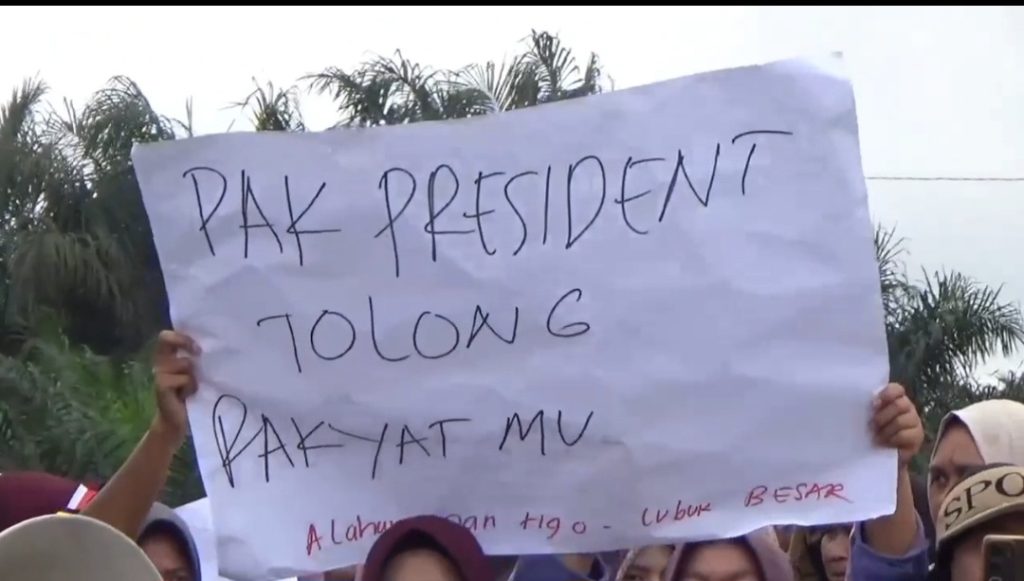 PAK PRESIDENT
TOLONG
RAKYAT MU
tigo - Lubuk BESAR
SPO